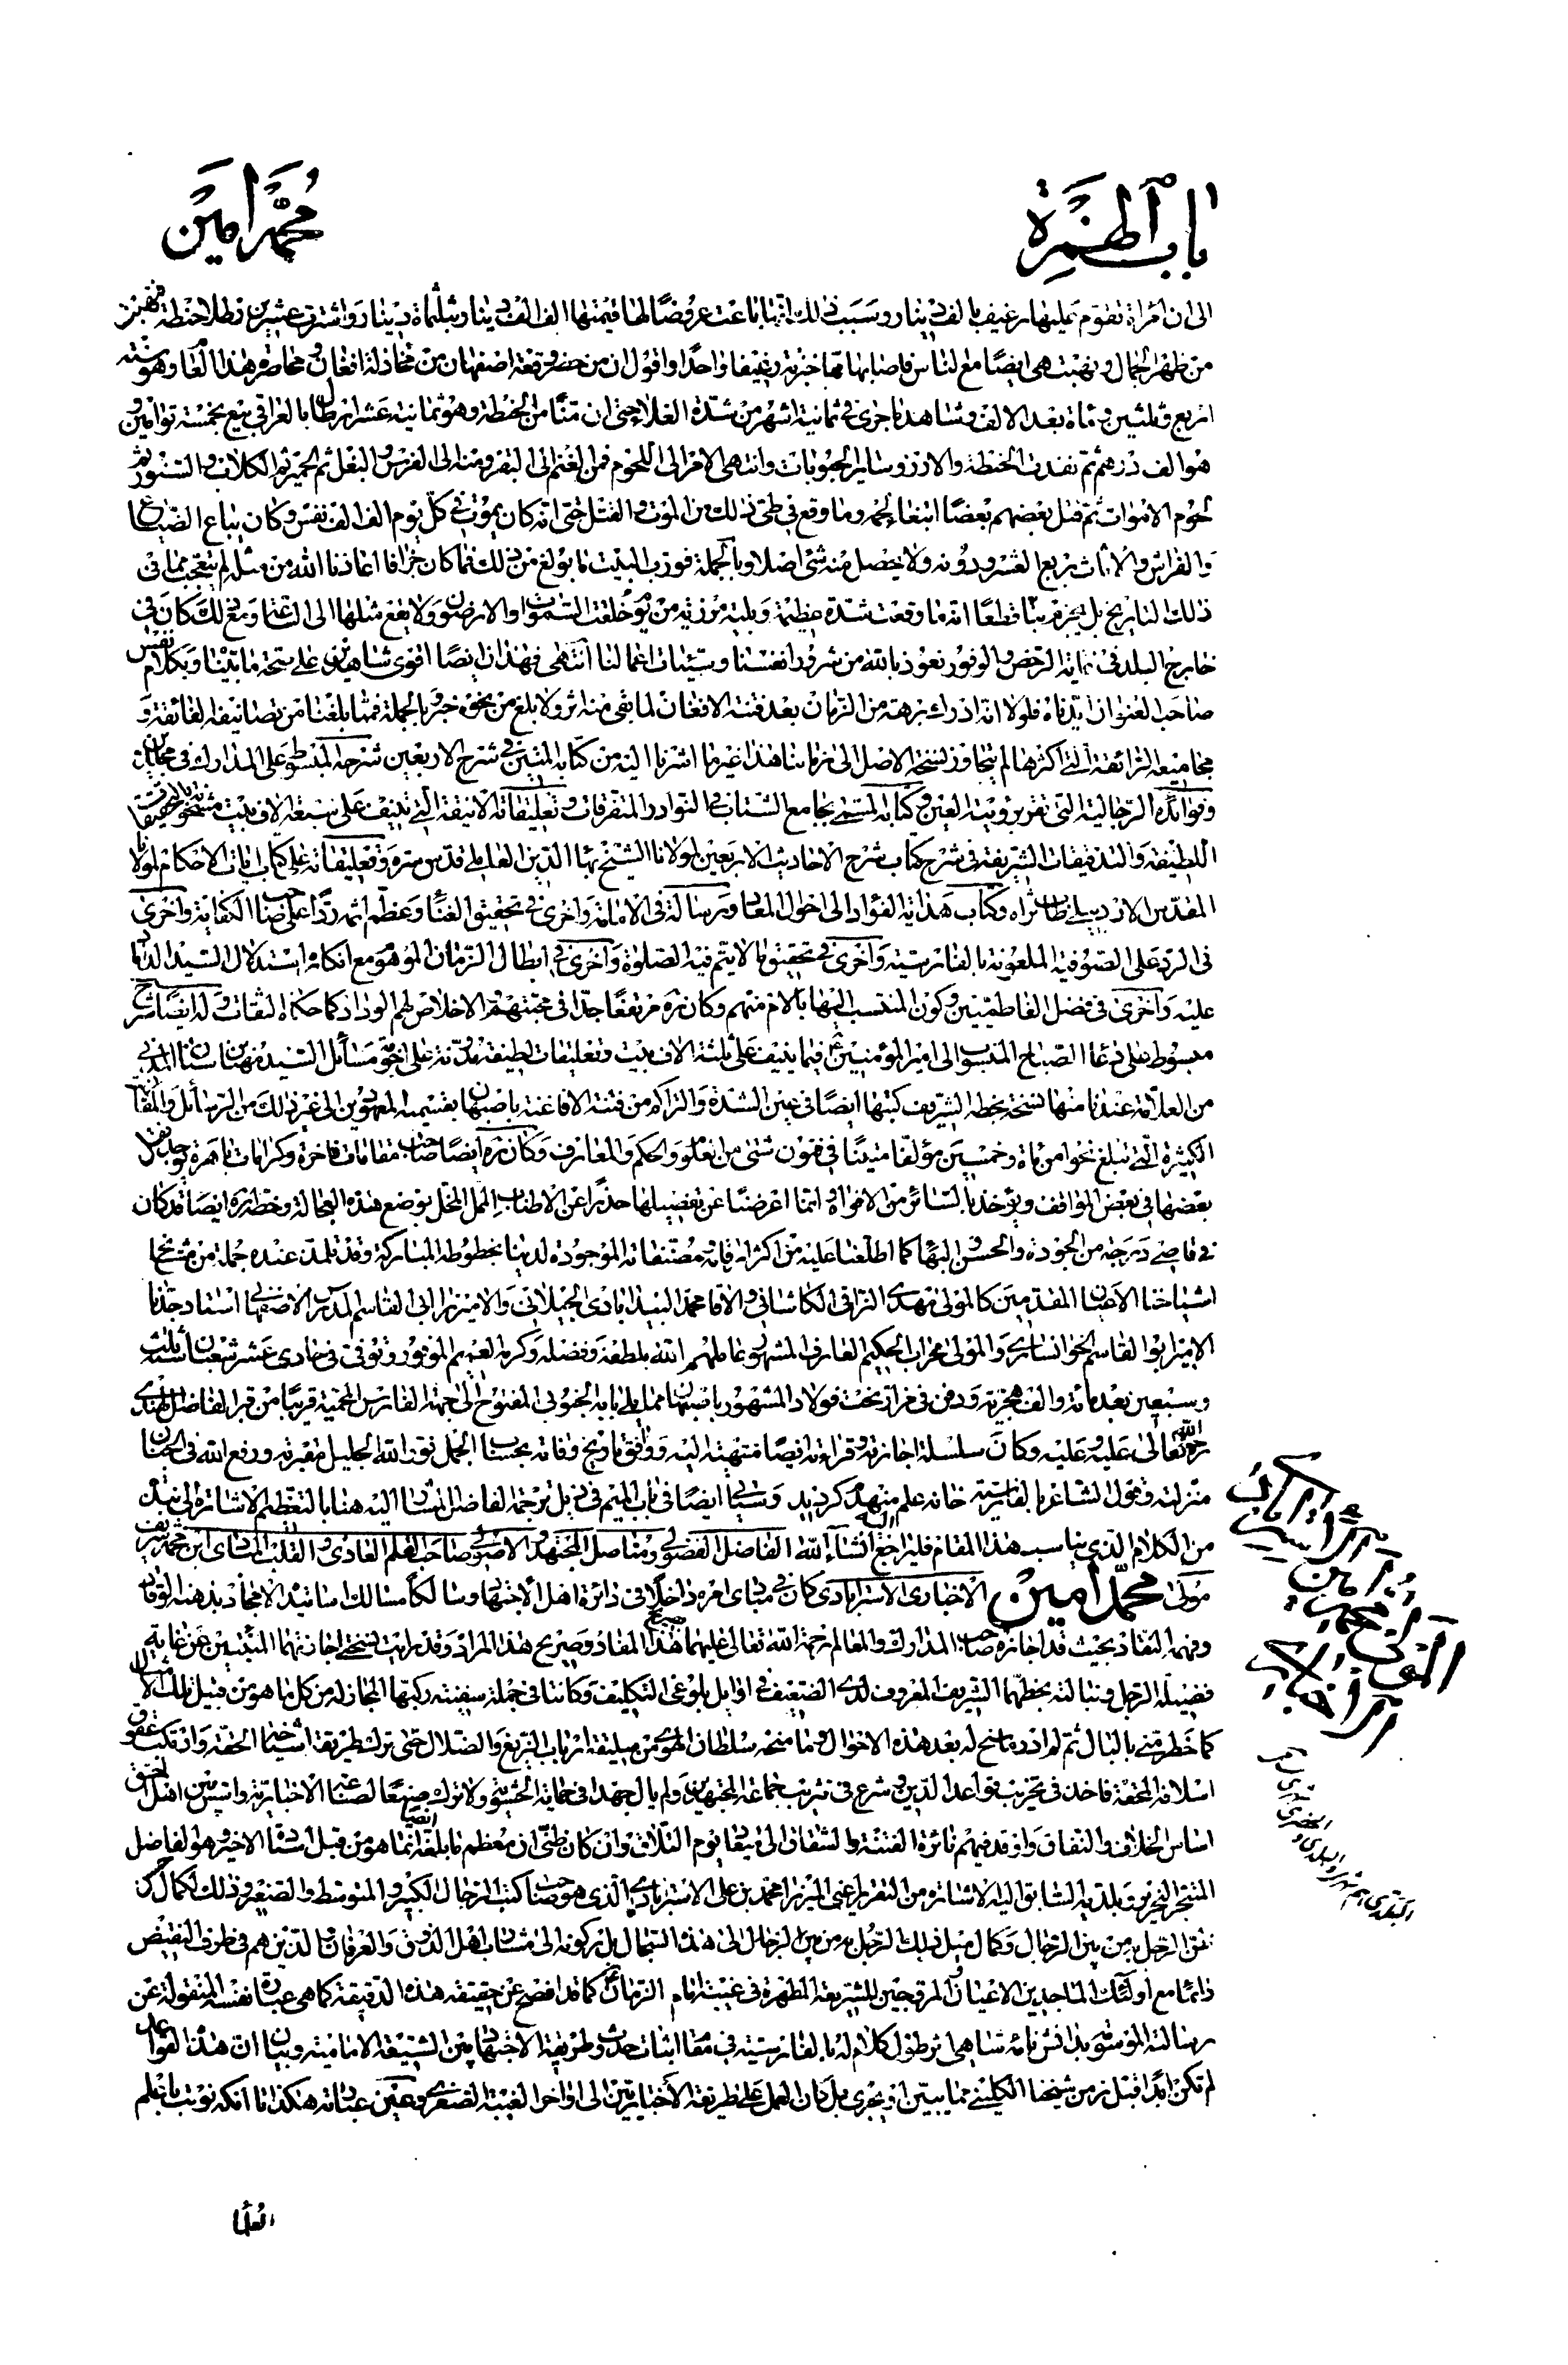 باب الهمزة
محمد امين
الى ان امرأة تقوم عليها رغيف بالف دينار وسبب ذلك انها باعت عروضا لها قيمتها الف الف دينار بثلثمائة دينار واشترت عشرين رطلا حنطة فنهبت
من ظهر الجمال ونهبت هى ايضا مع الناس فاصابها مما خبزته رغيفا واحدا واقول ان من حضر وقعة اصفهان من مخاذلة افغان ومحاصرة هذا العام وهو سنة
اربع وثلثين ومأة بعد الالف وشاهد ما جرى فى ثمانية اشهر من شدة الغلاء حتى ان منا من الحنطة وهو ثمانية عشر ارطال بالعراقى بيع بخمسة توامين و
هو الف درهم ثم نفدت الحنطة والارز وساير الحبوبات وانتهى الامر الى اللحوم فمن الغنم الى البقر ومنه الى الفرس والبغل ثم الحمير ثم الكلاب والسنور ثم
لحوم الاموات ثم قتل بعضهم بعضا ابتغاء لحمه وما وقع فى طى ذلك من الموت والقتل حتى انه كان يموت فى كل يوم الف الف نفس وكان يباع الضياع
والفراش والاثاث بربع العشر ودونه ولا يحصل منه شئ اصلا وبالجملة فورب البيت ما بولغ من ذلك فما كان جزافا اعاذنا الله من مثله لم يتعجب مما فى
ذلك التاريخ بل يجزم بتا قطعا انه ما وقعت شدة عظيمة وبلية مرزئة من يوم خلقت السموات والارضون ولا يقع مثلها الى الساعة ومع ذلك كان فى
خارج البلد فى نهاية الرخص والوفور نعوذ بالله من شرور انفسنا وسيئات اعمالنا انتهى فهذان ايضا اقوى شاهدين على صحة ما بينا وبكلام نفس
صاحب العنوان ايدناه فلولا انه ادرك برهة من الزمان بعد فتنة الافغان لما بقى منه اثر ولا بلغ من نحوه خبر وبالجملة فمما بلغنا من تصانيفه الفائقة و
مجاميعه الرائقة التى اكثرها لم يتجاوز نسخة الاصل الى زماننا هذا غير ما اشرنا اليه من كتابه المتين فى شرح الاربعين شرحه المبسوط على المدارك فى مجلدين
وفوائده الرجالية التى تقر برؤيته العين وكتابه المسمى بجامع الشتات فى النوادر المتفرقات وتعليقاته الانيقة التى تنيف على سبعة الاف بيت مشحونة بالتحقيقات
اللطيفة والتدقيقات الشريفة فى شرح كتاب شرح الاحاديث الاربعين لمولانا الشيخ بهاء الدين العاملى قدس سره وتعليقاته على كتاب ايات الاحكام لمولانا
المقدس الاردبيلى طاب ثراه وكتاب هداية الفؤاد الى احوال المعاد ورسالة فى الامامة واخرى فى تحقيق الغناء وعظم اثمه ردا على صاحب الكفاية واخرى
فى الرد على الصوفية الملعونة بالفارسية واخرى فى تحقيق ما لا يتم فيه الصلوة واخرى فى ابطال الزمان الموهوم مع انكاره استدلال السيد الداماد
عليه واخرى فى فضل الفاطميين وكون المنتسب اليها بالام منهم وكان ره مرتفعا جدا فى محبتهم والاخلاص لهم الوداد كما حكاه الثقات وله ايضا شرح
مبسوط على دعاء الصباح المنسوب الى امير المؤمنين ع فيما ينيف على ثلثة الاف بيت وتعليقات لطيفة مدونة على اجوبة مسائل السيد مهنا بن سنان المدنى
من العلامة عندنا منها نسخة بخطه الشريف كتبها ايضا فى عين الشدة والتراكم من فتنة الافاغنة باصبهان بقسيمه المهون الى غير ذلك من الرسائل والمقالات
الكثيرة التى تبلغ نحوا من مأة وخمسين مؤلفا متينا فى فنون شتى من العلوم والحكم والمعارف وكان ره ايضا صاحب مقامات فاخرة وكرامات باهرة يوجد نقل
بعضها فى بعض المواقف ويؤخذ بالسائر من الافواه وانما اعرضنا عن تفصيلها حذرا عن الاطناب الممل المخل بوضع هذه العجالة وخطه ره ايضا قد كان
فى قاصى درجة من الجودة والحسن والبهاء كما اطلعنا عليه من اكثر ارقامه ومصنفاته الموجودة لدينا بخطوطه المباركة وقد تلمذ عنده جملة من مشايخنا
اشياخنا الاعيان المقدمين كالمولى مهدى النراقى الكاشانى والاقا محمد البيدابادى الجيلانى والاميرزا ابى القاسم المدرس الاصفهانى استاد جدنا
الامير ابو القاسم الخوانسارى والمولى محراب الحكيم العارف المشهور عاملهم الله بلطفه وفضله وكرمه العميم الموفور وتوفى فى حادى عشر شعبان سنة ثلث
وسبعين بعد مائة والف هجرية ودفن فى مزار تخت فولاد المشهور باصبهان مما يلى بابه الجنوبى المفتوح الى جهة الفارس المحمية قريبا من قبر الفاضل الهندى
رحمة الله تعالى عليه وعليه وكان سلسلة اجازته وقراءته ايضا منتهية اليه ووافق تاريخ وفاته بحساب الجمل نور الله الجليل مقبرته ورفع الله فى الجنان
منزلته وبقول الشاعر بالفارسية خانه علم منهدم گرديد وسيأتى ايضا فى باب الميم فى ذيل ترجمة الفاضل المشار اليه هنا بالتعظيم الاشارة الى نبذ
من الكلام الذى يناسب هذا المقام فليراجع انشاء الله الفاضل الفضولى ومناصل المجتهدين الاصولى صاحب القلم العادى والقلب المبادى ابن محمد شريف
مولى محمد امين الاخبارى الاسترابادى كان فى مبادى امره داخلا فى دائرة اهل الاجتهاد وسالكا مسالك اساتيد الامجاد بذهنه الوقاد
وفهمه النقاد بحيث قد اجازه صاحب المدارك والمعالم رحمة الله تعالى عليهما هذا المفاد وصريح هذا المراد وقد رايت نسختى اجازتهما المنبئتين عن غاية
فضيلة الرجل ونبالته بخطهما الشريف المعروف لدى الضعيف فى اوايل بلوغى التكليف وكانتا فى جملة سفينة ركبتها الخازلة من كل ما هو من قبيل تلك الامثال
كما خطر منى بالبال ثم لم ادر ما سنح له بعد هذه الاحوال وما منحه سلطان الهوى من سليقة ارباب الزيغ والضلال حتى ترك طريقة اشياخنا الحقة وارتكب عقوق
اسلافه المحقة فاخذ فى تخريب قواعد الدين وشرع فى تثريب جماعة المجتهدين ولم يأل جهدا فى حماية الحشوية ولا ترك صنعا لصناعة الاخبارية واسس بين اهل الحق
اساس الخلاف والنفاق واوقد فيهم نائرة الفتنة والشقاق الى ميعاد يوم التلاق وان كان ظنى ان معظم ما بلغه ايضا انما هو من قبل استاده الاخير وهو الفاضل
المتبحر النحرير وبلديه السابق اليه الاشارة من التقرير اعنى الميرزا محمد بن على الاسترابادى الذى هو صاحب كتب الرجال الكبير والمتوسط والصغير وذلك لكمال ركون
نفس الرجل به من بين الرجال وكمال ميل ذلك الرجل به من بين الرجال الى هذا السجال بل ركونه الى مشارب اهل الذوق والعرفان الذين هم فى طرف النقيض
دائما مع اولئك الماجدين الاعيان المروجين للشريعة المطهرة فى غيبة امام الزمان ع كما قد افصح عن حقيقة هذه الدقيقة كما هى عبارة نفسه المنقولة عن
رسالته الموسومة بدانش نامه شاهى بر طول كلام له بالفارسية فى مقام اثبات حدوث طريقة الاجتهاد بين الشيعة الامامية وبيان ان هذه القواعد
لم تكن ابدا قبل زمن شيخنا الكلينى مما يبين او يجرى بل كان العمل على طريقة الأخباريين الى اواخر الغيبة الصغرى وعين عباراته هكذا تا انكه نوبت باعلم
العلماء
المولى محمد امين الاسترابادى الاخبارى